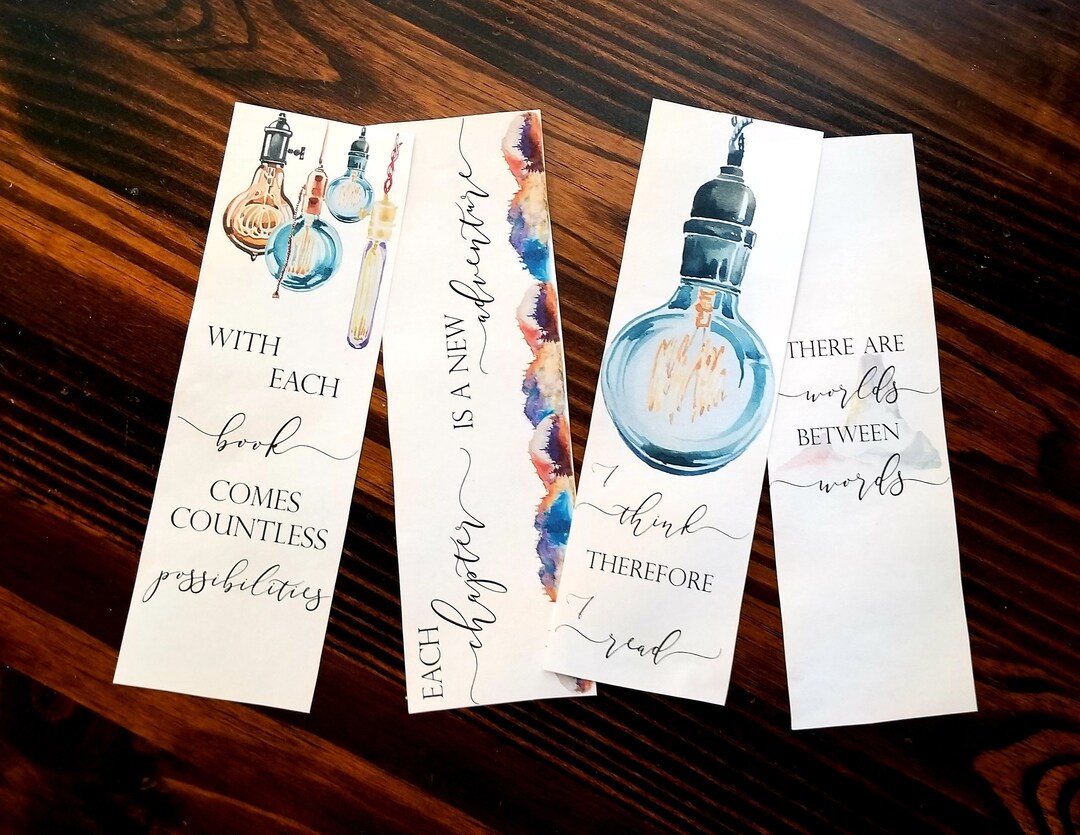 WITH
EACH
book
COMES
COUNTLESS
possibilities
EACH chapter IS A NEW adventure
I
think
THEREFORE
I
read
THERE ARE
worlds
BETWEEN
words